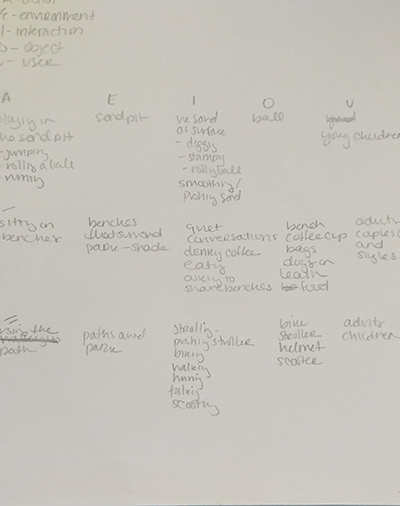 E - environment
I - interaction
O - object
U - user
A E I O U
playing in
the sand pit
- jumping
- rolling a ball
- running
sand pit
use sand
as surface
- digging
- stamping
- rolling ball
smoothing/
pushing sand
ball
young children
sitting on
benches
benches
around
park - shade
quiet
conversations
drinking coffee
eating
asking to
share benches
bench
coffee cup
bags
dogs on
leash
food
adults
couples
and
singles
using the
path
paths and
park
strolling -
pushing stroller
biking
walking
running
talking
scooting
bike
stroller
helmet
scooter
adults
children